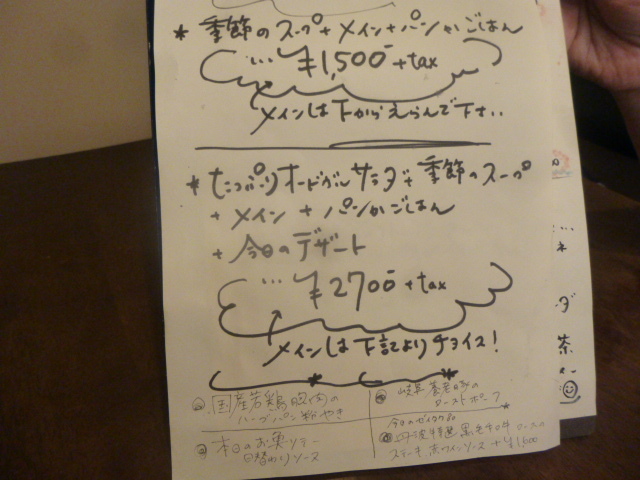 * 季節のスープ+メイン+パンかごはん
... ¥1,500 +tax
メインは下からえらんで下さい
* たっぷりオードブルサラダ+季節のスープ
+メイン+パンかごはん
+今日のデザート
... ¥2700 +tax
メインは下記よりチョイス!
国産若鶏
ハーブパン粉やき
本日のお魚ソテー
日替わりソース
岐阜養老豚の
ローストポーク
今日のゼイタク品
丹波特選黒毛和牛ロースの
ステーキ 赤ワインソース +¥1,000